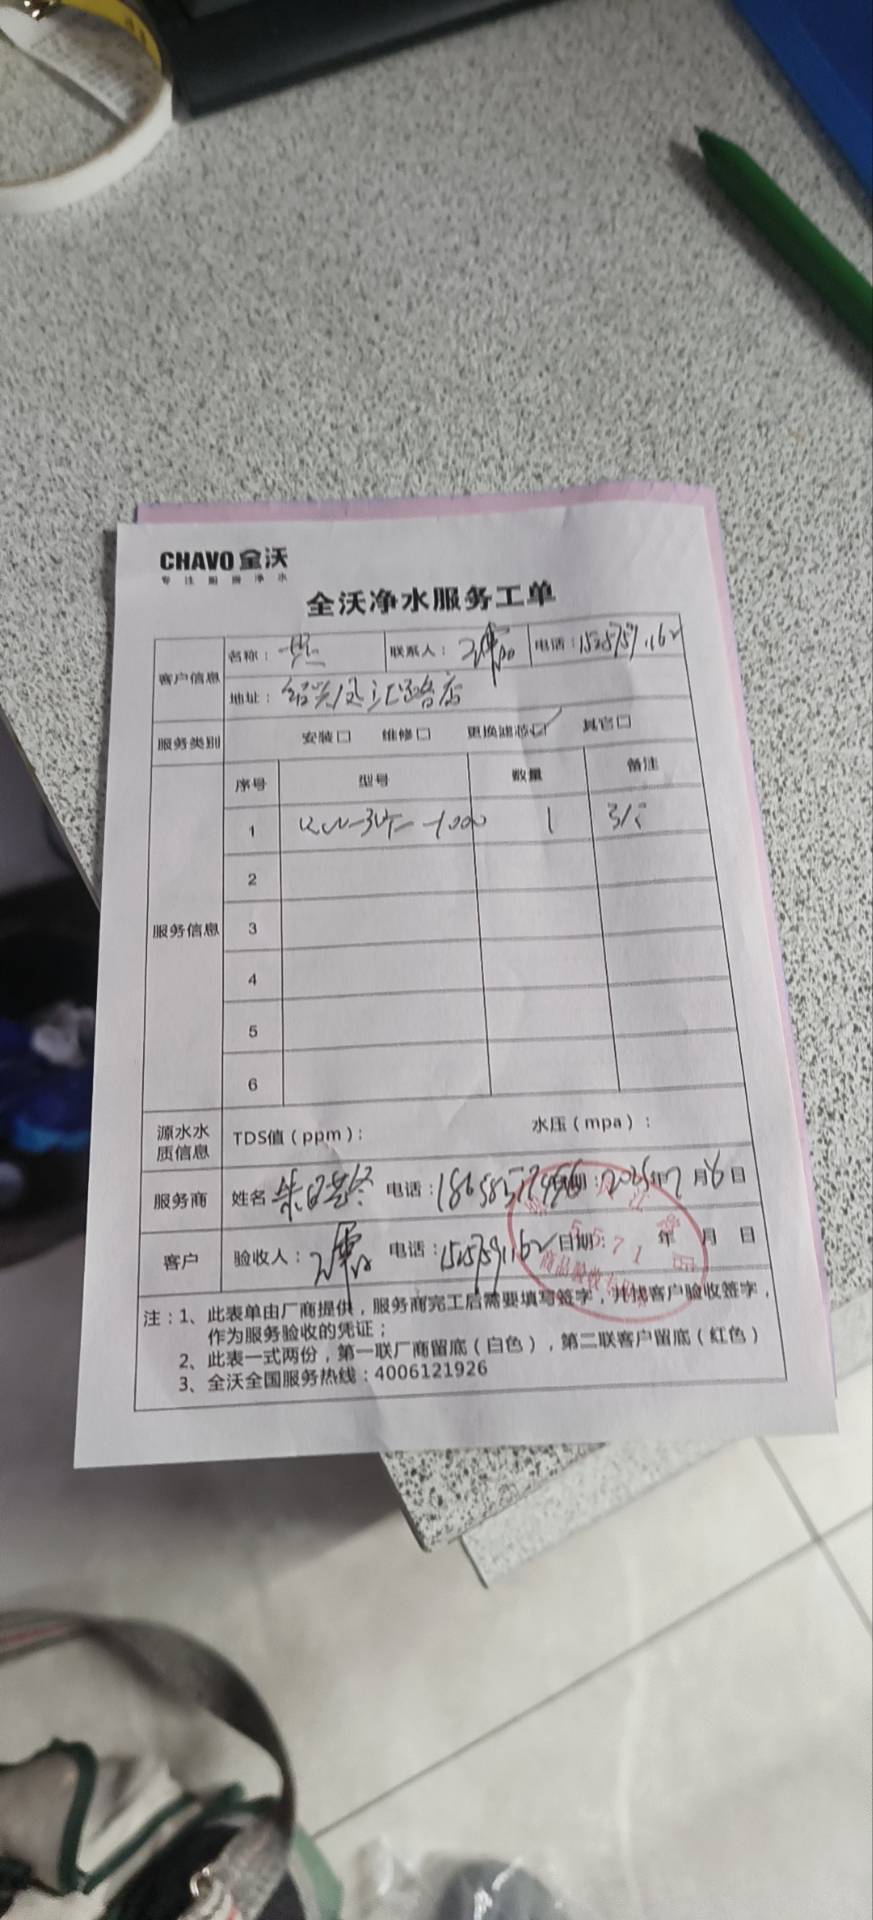 CHAVO 全沃
专注厨房净水
全沃净水服务工单
客户信息
名称： 联系人： 电话：
地址：绍兴凤江路店
服务类别 安装□ 维修□ 更换滤芯□✓ 其它□
服务信息
序号 型号 数量 备注
1 1
2
3
4
5
6
源水水质信息 TDS值（ppm）： 水压（mpa）：
服务商 姓名 电话： 日期：2025年7月6日
客户 验收人： 电话： 日期： 年 月 日
注：1、此表单由厂商提供，服务商完工后需要填写签字，并找客户验收签字，
作为服务验收的凭证；
2、此表一式两份，第一联厂商留底（白色），第二联客户留底（红色）
3、全沃全国服务热线：4006121926